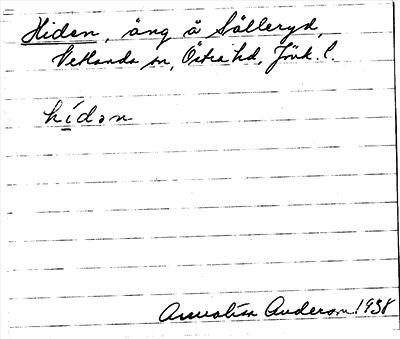 Hiden, äng å Sälleryd,
Vetlanda sn, Östra hd, Jönk. l.
hídən
Annalisa Anderson 1938